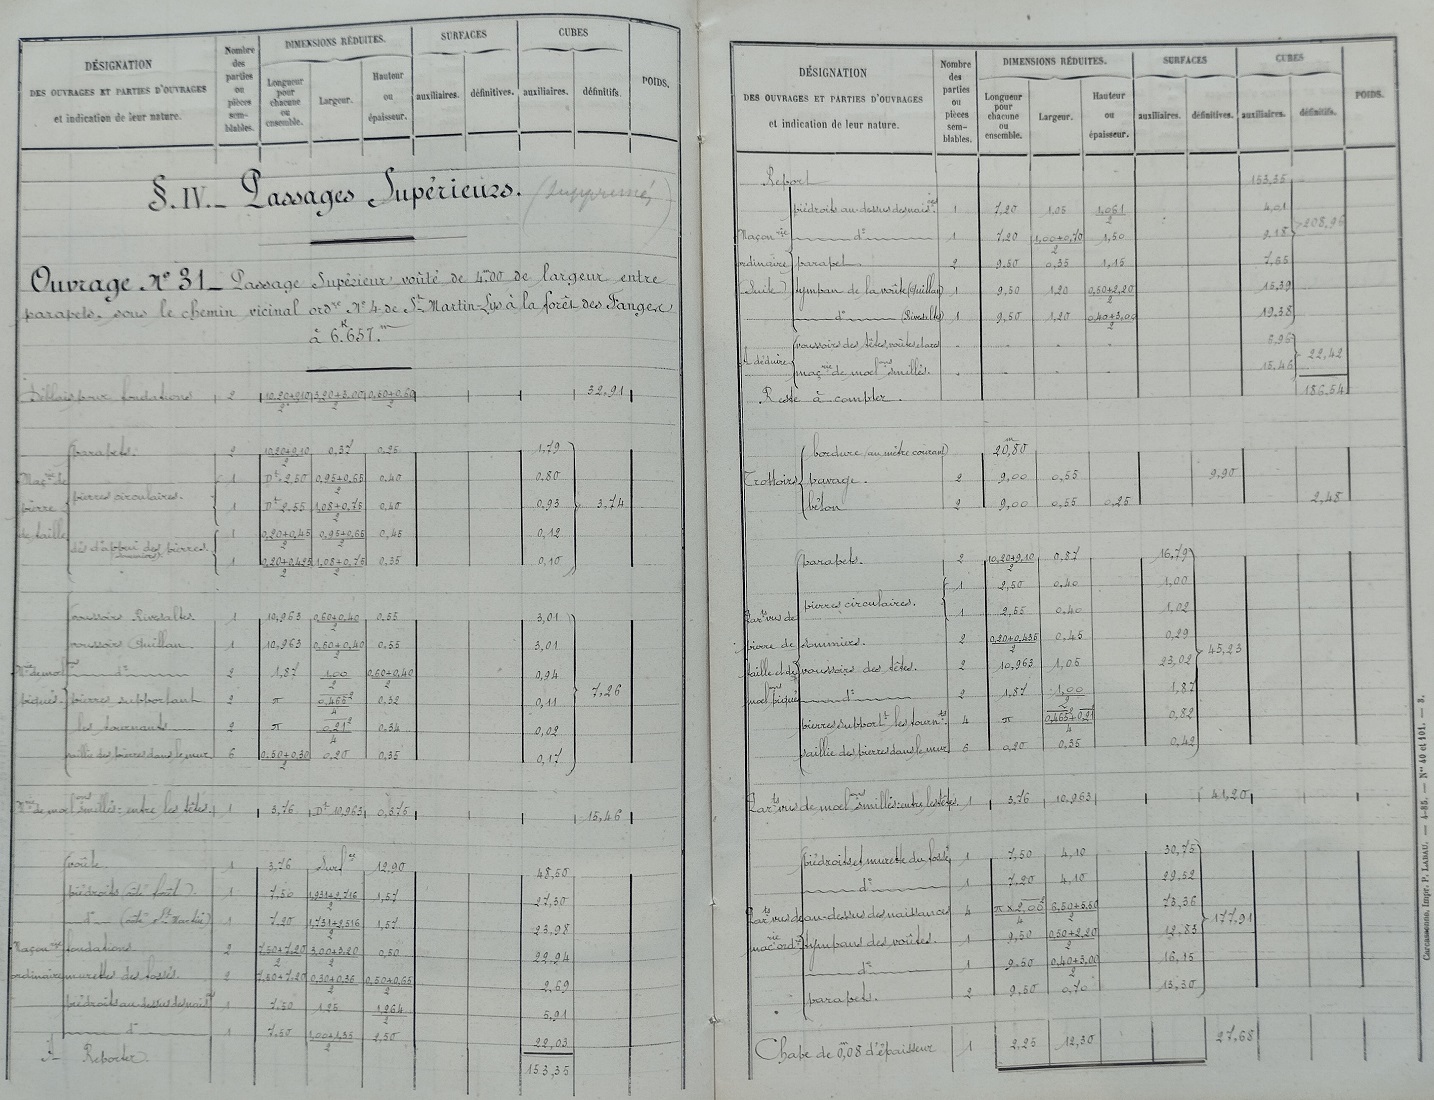 DÉSIGNATION
DES OUVRAGES ET PARTIES D'OUVRAGES
et indication de leur nature.
Nombre des parties ou pièces semblables.
DIMENSIONS RÉDUITES.
Longueur pour chacune ou ensemble.
Largeur.
Hauteur ou épaisseur.
SURFACES
auxiliaires.
définitives.
CUBES
auxiliaires.
définitifs.
POIDS.
§.IV._ Passages Supérieurs. (supprimé)
Ouvrage N° 31_ Passage Supérieur voûté de 4m00 de largeur entre
parapets, sous le chemin vicinal ordre N° 4 de St Martin-Lys à la forêt des Fanges
à 6K.657.m
Déblais pour fondations 2 32,91
Maçrie de pierre de taille
parapets. 2 (10,20+9,10)/2 0,37 0,25 1,79
pierres circulaires. 1 Dt 2,50 (0,95+0,65)/2 0,40 0,80
1 Dt 2,55 (1,08+0,75)/2 0,40 0,93 3,74
dés d'appui des pierres. 1 (0,20+0,45)/2 (0,95+0,65)/2 0,45 0,12
1 (0,20+0,425)/2 (1,08+0,75)/2 0,35 0,10
voussoirs Rivesaltes 1 10,963 (0,50+0,40)/2 0,55 3,01
voussoirs Quillan 1 10,963 (0,50+0,40)/2 0,55 3,01
Mrie de moellons piqués
do 2 1,87 1,00/2 (0,60+0,40)/2 0,94
pierres supportant 2 π 0,465²/4 0,32 0,11 7,26
les tournants 2 π 0,21²/4 0,34 0,02
saillie des pierres dans le mur 6 (0,50+0,30)/2 0,20 0,35 0,17
Mrie de moellons smillés: entre les têtes. 1 3,76 Dt 10,963 0,375 15,46
voûte 1 3,76 Surfce 12,90 48,50
piédroits 1 7,50 (1,931+2,716)/2 1,57 27,30
do (côté St Martin) 1 7,20 (1,731+2,516)/2 1,57 23,98
Maçonrie ordinaire
fondations 2 (7,50+7,20)/2 (3,00+3,20)/2 0,50 22,94
murettes des fossés 2 (7,50+7,20)/2 (0,30+0,35)/2 (0,50+0,65)/2 2,69
piédroits au-dessus des naissces 1 7,50 1,25 1,264/2 5,91
do 1 7,50 (1,00+1,35)/2 2,50 22,03
A Reporter. 153,35
DÉSIGNATION
DES OUVRAGES ET PARTIES D'OUVRAGES
et indication de leur nature.
Nombre des parties ou pièces semblables.
DIMENSIONS RÉDUITES.
Longueur pour chacune ou ensemble.
Largeur.
Hauteur ou épaisseur.
SURFACES
auxiliaires.
définitives.
CUBES
auxiliaires.
définitifs.
POIDS.
Report 153,35
Maçonrie ordinaire (Suite)
piédroits au-dessus des naissces 1 7,20 1,05 1,061/2 4,01
do 1 7,20 (1,00+0,70)/2 1,50 9,18 208,96
parapet 2 9,50 0,35 1,15 7,65
tympan de la voûte (Quillan) 1 9,50 1,20 (0,50+2,20)/2 15,39
do (Rivesaltes) 1 9,50 1,20 (0,40+3,00)/2 19,38
A déduire
voussoirs des têtes, voûtes clavs " " " 6,96
maçrie de moellons smillés. " " " 15,46 22,42
Reste à compter. 186,54
Trottoirs
bordure (au mètre courant) 20,50m
pavage. 2 9,00 0,55 9,90
béton 2 9,00 0,55 0,25 2,48
Parts vus de pierre de taille et de moellons piqués
parapets. 2 (10,20+9,10)/2 0,87 16,79
pierres circulaires. 1 2,50 0,40 1,00
1 2,55 0,40 1,02
sommiers. 2 (0,20+0,436)/2 0,45 0,29
voussoirs des têtes. 2 10,963 1,05 23,02 45,23
do 2 1,87 1,00/2 1,87
pierres supportt les tournts 4 π (0,465²+0,21²)/4 0,82
saillie des pierres dans le mur 6 0,20 0,35 0,42
Parts vus de moellons smillés: entre les têtes. 1 3,76 10,963 41,20
Parts vus de macrie ordre
piédroits et murette du fossé 1 7,50 4,10 30,75
do 1 7,20 4,10 29,52
au-dessus des naissances 4 (π×2,00²)/4 (6,50+5,50)/2 73,36
tympans des voûtes. 1 9,50 (0,50+2,20)/2 12,83 177,91
do 1 9,50 (0,40+3,00)/2 16,15
parapets. 2 9,50 0,70 15,30
Chape de 0m,08 d'épaisseur 1 2,25 12,30 27,68
Carcassonne, Impr. P. LABAU. — 4-85. — Nos 40 et 101. — 3.